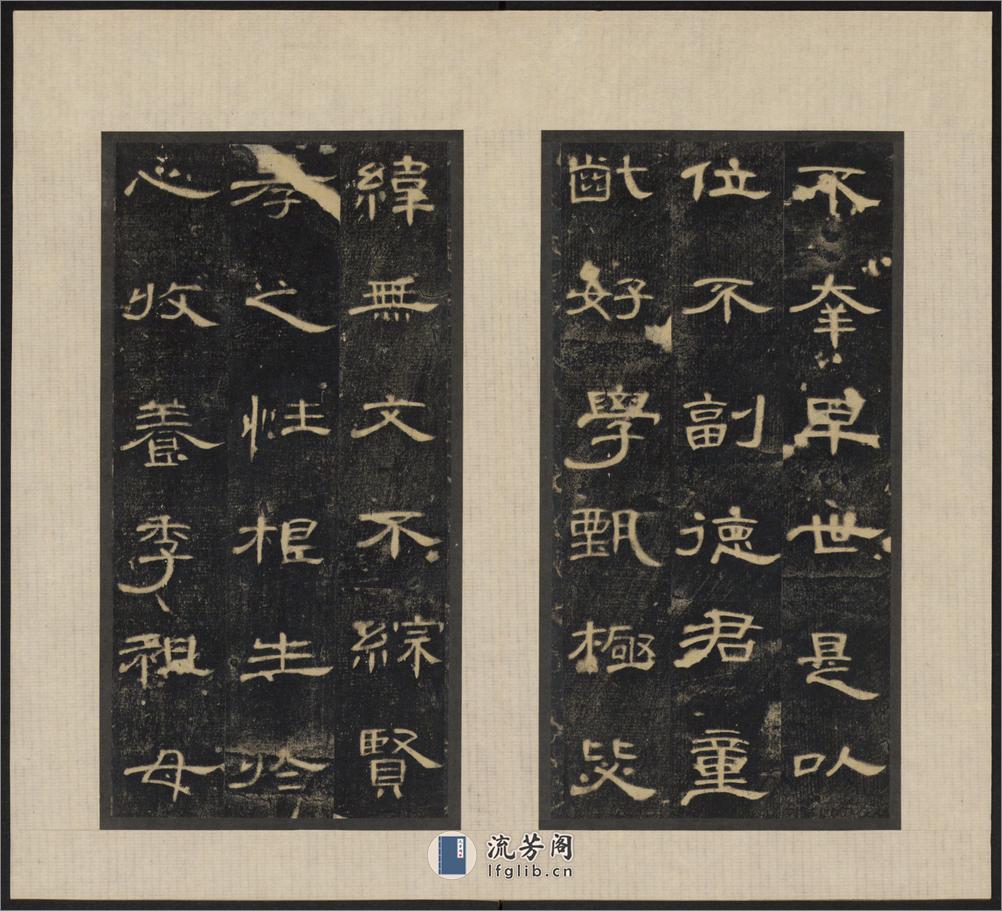 不幸早世是以
位不副德君童
齔好學甄極毖
緯無文不綜賢
孝之性根生於
心收養季祖母
流芳阁
lfglib.cn